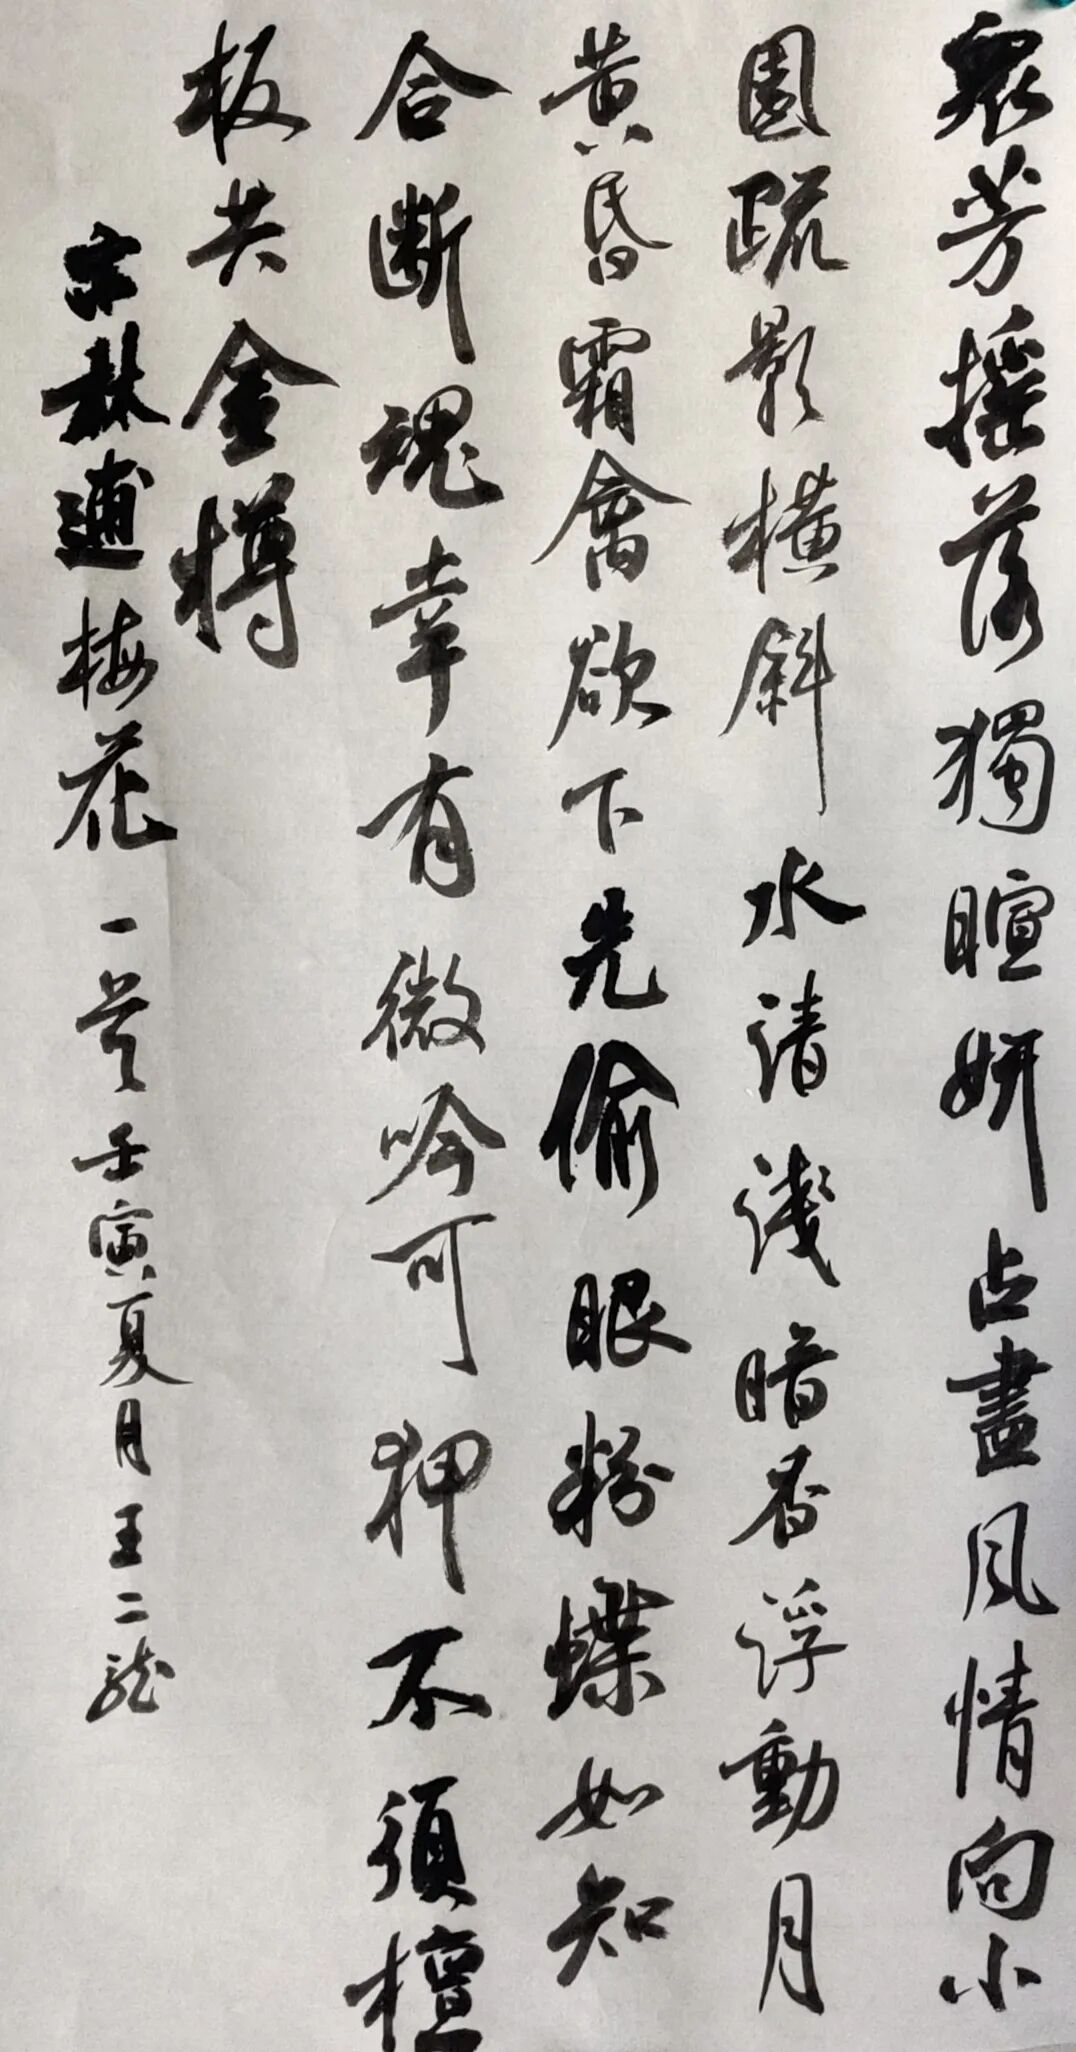 衆芳摇落獨暄妍占盡風情向小
園疏影橫斜水清淺暗香浮動月
黄昏霜禽欲下先偷眼粉蝶如知
合斷魂幸有微吟可狎不須檀
板共金樽
宋林逋梅花一首壬寅夏月王二龍